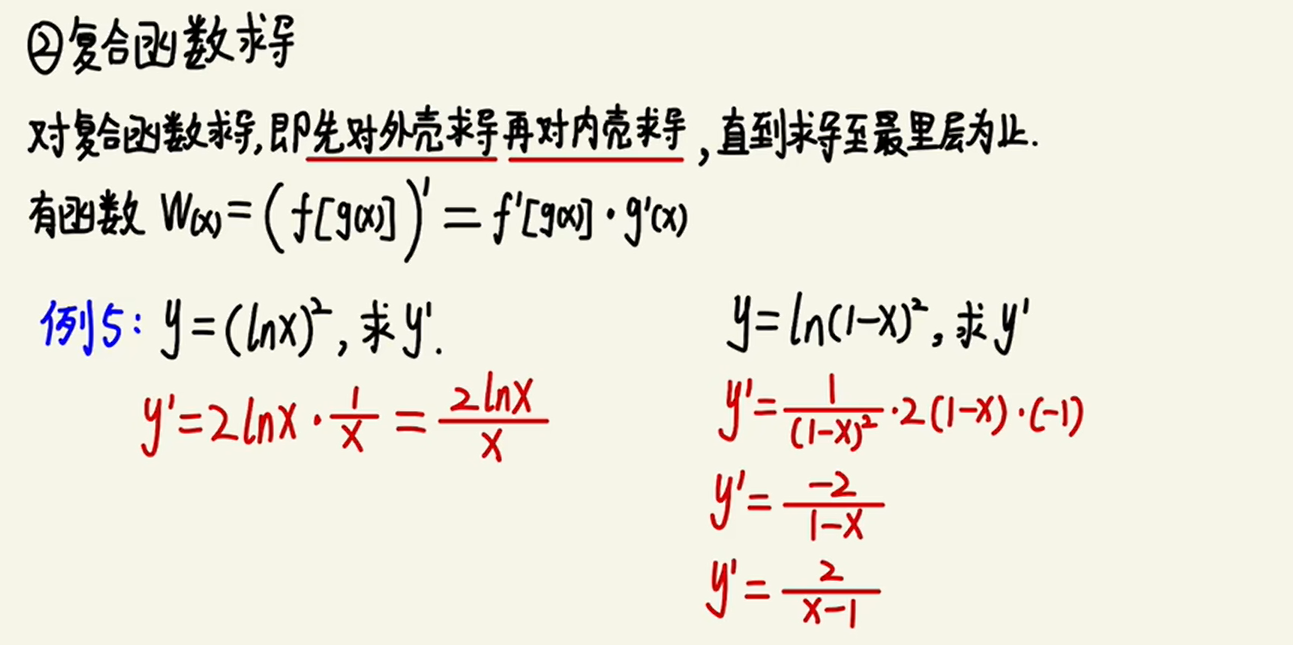 ②复合函数求导
对复合函数求导,即先对外壳求导再对内壳求导,直到求导至最里层为止.
有函数 W(x)=(f[g(x)])'=f'[g(x)]·g'(x)
例5: y=(lnx)²,求y'.
y'=2lnx·1/x=2lnx/x
y=ln(1-x)²,求y'
y'=1/(1-x)²·2(1-x)·(-1)
y'=-2/1-x
y'=2/x-1